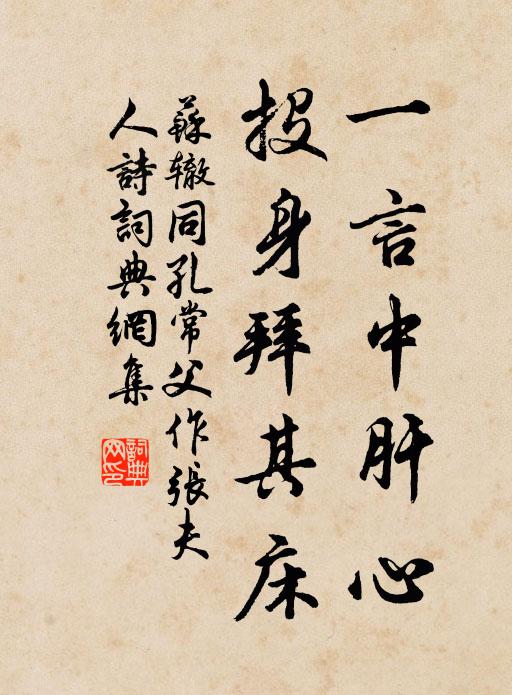 一言中肝心
投身拜其床
蘇辙同孔常父作張夫
人詩詞典網集
詞典
网印